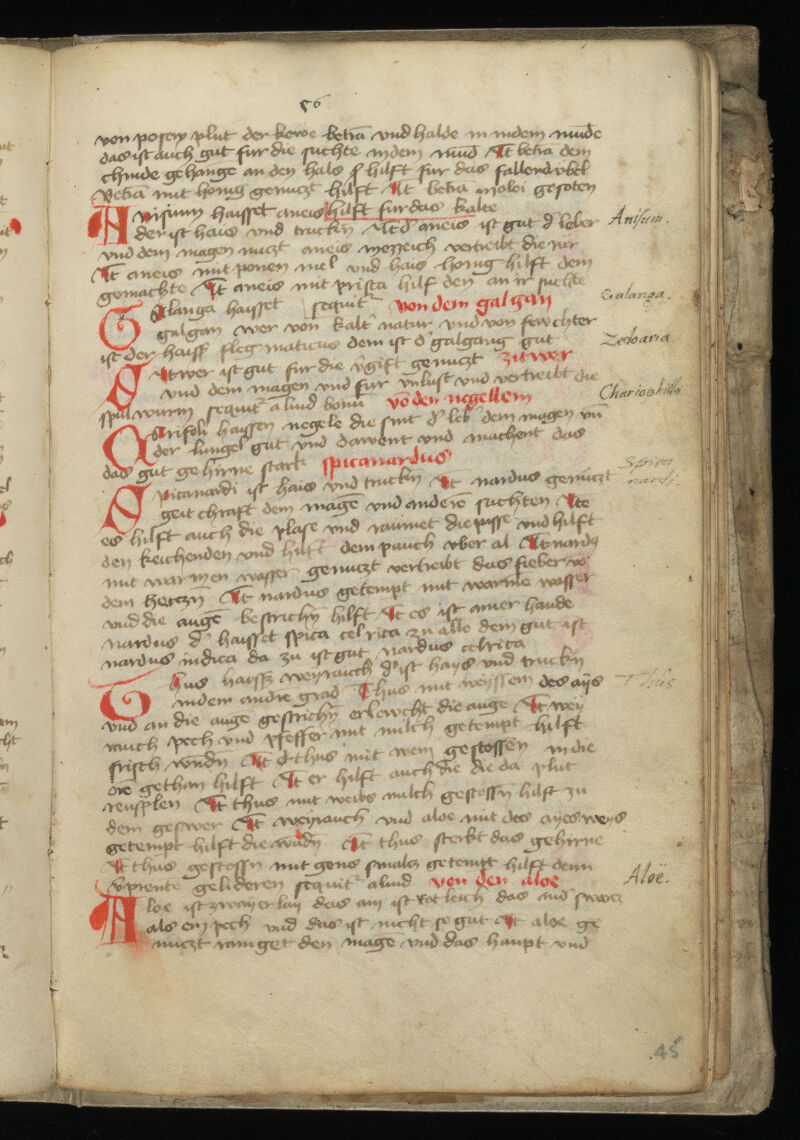 56
von posem plut der kewe betran vnd halde in indem munde
das ist auch gut fur die suchte indem mund Jtē betra dem
chinde gehange an den hals hilft fur das fallend vbel
Betra mit honig genuczt hilft Jtē betra in olei gesoten
Anisum haisset aneis hilft fur das kalte
der ist hais vnd truckn Jtē aneis ist gut d leber
vnd dem magen nuczt aneis vertreibt die
Jtē aneis mit vnd hais honig hilft dem
gemachte Jtē aneis mit hilf den an ir suchte
Galanga haysset sequit von dem galgan
galgan wer von kalt natur vnd von fewchter
ist der haiss flegmaticus dem ist d galgang gut
Citwer ist gut fur die v̄gift genuczt zitwer
vnd dem magen vnd fur vnlust vnd vertreibt die
spulwurm sequit aliud bonū vō den negellein
Garifoli haissen negele die sint d leb dem magen vn̄
der lungel gut vnd dawent vnd machent das
das gut gehirne stark spicanardus
Spicanardi ist hais vnd truckn Jtē nardus genuczt
geit chraft dem magē vnd anderē suchten Jte
es hilft auch die plase vnd raumet die pisse vnd hilft
den keichenden vnd hilft dem pauch vber al Jtē nardn
mit warmen wasser genuczt vertreibt das fieber vō
dem herczn Jtē nardus getempt mit warme wasser
vnd die augē bestrichn hilft Jtē es ist ainer hande
nardus d haisset spica celtica zu alle dem gut ist
nardus indica da zu ist gut nardus celtica
Thus haisz weyrauch d ist hays vnd truckn
indem andrē grad Thus mit weyssem des ays
vnd an die auge gestrichn erlewcht die auge Jtē wey
rauch pech vnd pfeffer mit milch getempt hilft
frisch wndn Jtē thus mit wein gestossen in die
ore gethan hilft Jtē er hilft auch die die da plut
Jtē thus mit weibs milch gestossn hilft zu
dem geswer Jtē weyrauch vnd aloe mit des ayes weys
getempt hilft die wūdn Jtē thus sterkt das gehirne
Jtē thus gestossn mit gens smalcz getempt hilft denn
v̄prente gelideren sequit aliud von den aloe
Aloe ist zwayerlay das ain ist rotleich das and swarcz
als ein pech vnd das ist nicht so gut Jtē aloe ge
nuczt rainget den magē vnd das haupt vnd
Anisum.
Galanga.
Zedoaria.
Spica
nardi
Thus
Aloë.
45